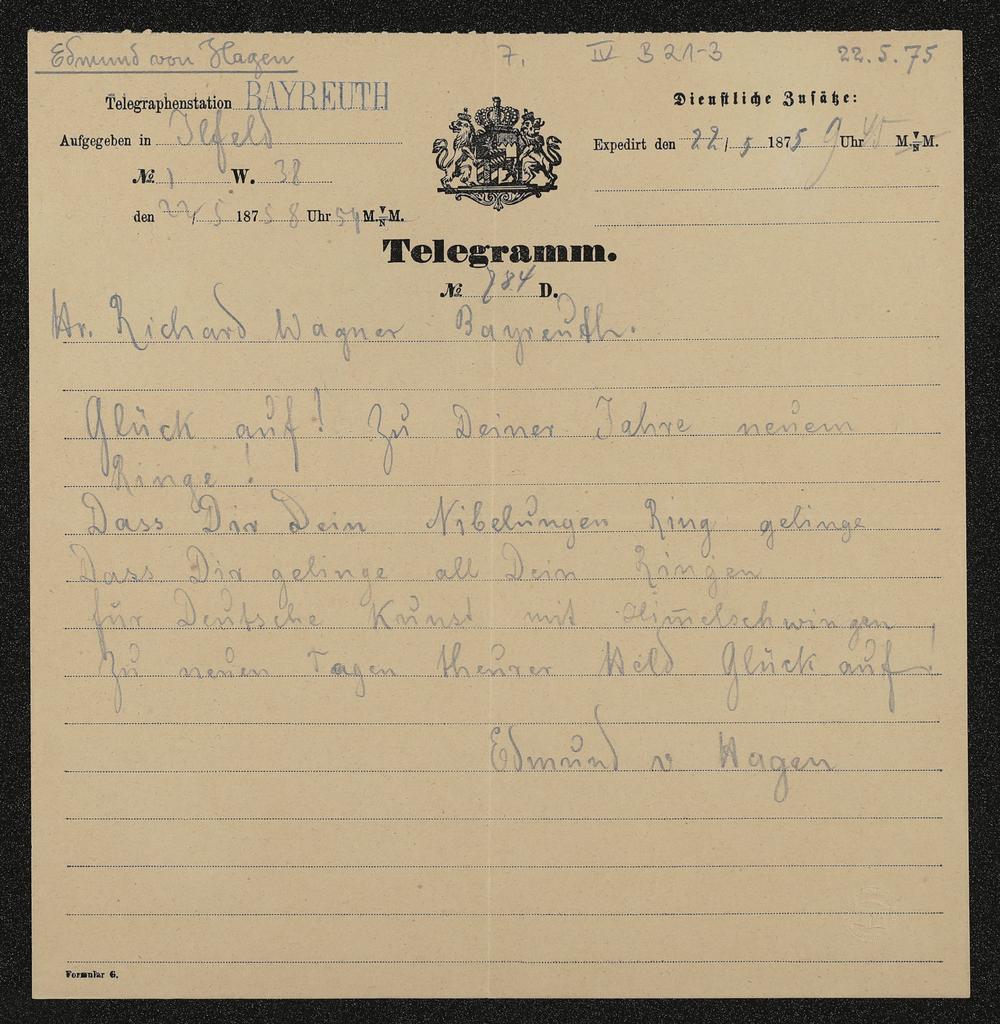 Edmund von Hagen 7. IV B 21-3 22.5.75
Telegraphenstation BAYREUTH
Dienstliche Zusätze:
Aufgegeben in Ilfeld
Expedirt den 22/5 1875 9 Uhr 45 M. V/N M.
№ 1 W. 38
den 22/5 1875 8 Uhr 54 M. V/N M.
Telegramm.
№ 784 D.
Hr. Richard Wagner Bayreuth.
Glück auf! Zu Deiner Jahre neuem
Ringe!
Dass Dir Dein Nibelungen Ring gelinge
Dass Dir gelinge all Dein Ringen
für Deutsche Kunst mit Him̅elschwingen,
Zu neuen Tagen theurer Held Glück auf!
Edmund v Hagen
Formular 6.